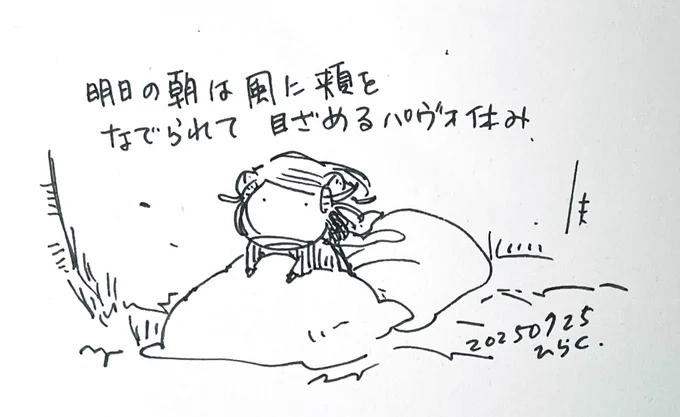 明日の朝は風に頬を
なでられて 目ざめるパヴォ休み.
20250725
ひらく.